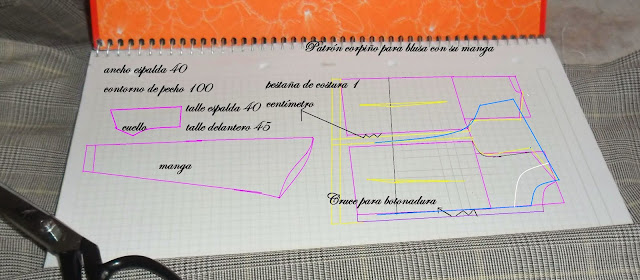 Patrón corpiño para blusa con su manga
ancho espalda 40
contorno de pecho 100
pestaña de costura 1
centímetro
talle espalda 40
talle delantero 45
cuello
manga
Cruce para botonadura